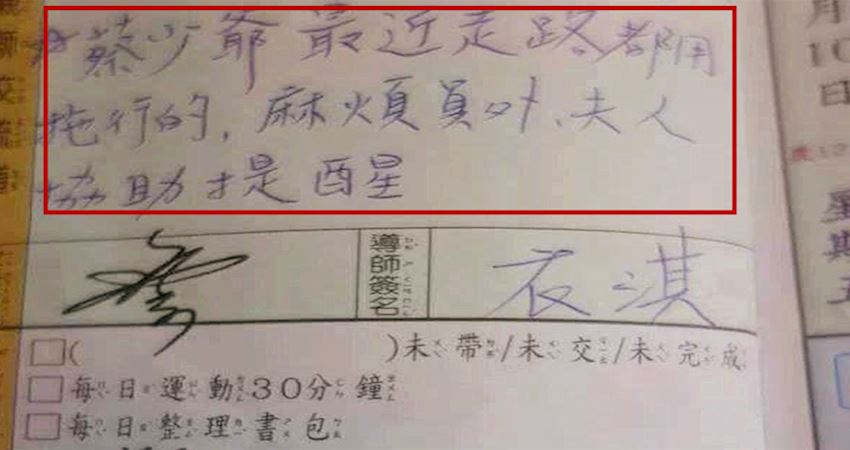 蔡少爺最近走路都用
拖行的，麻煩員外、夫人
協助提醒
導師簽名
衣淇
□( )未帶/未交/未完成
□每日運動30分鐘
□每日整理書包
月
10
日
星
期
五